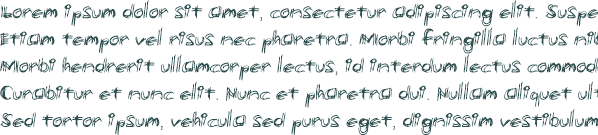 Lorem ipsum dolor sit amet, consectetur adipiscing elit. Suspe
Etiam tempor vel risus nec pharetra. Morbi fringilla luctus nib
Morbi hendrerit ullamcorper lectus, id interdum lectus commod
Curabitur et nunc elit. Nunc et pharetra dui. Nullam aliquet ult
Sed tortor ipsum, vehicula sed purus eget, dignissim vestibulum